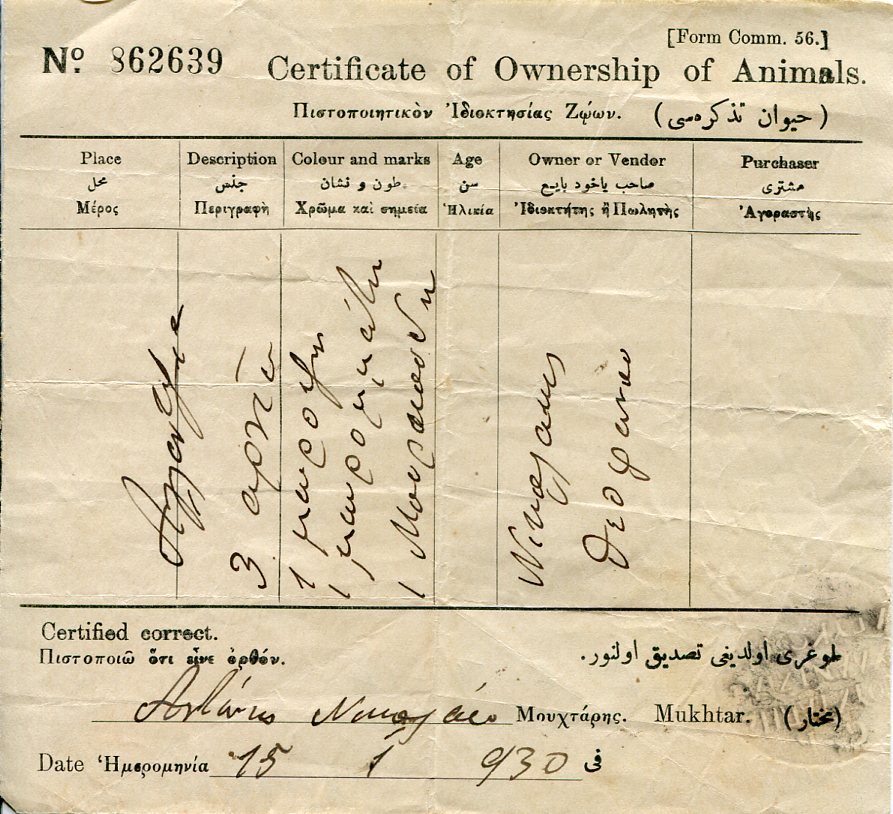 [Form Comm. 56.]
Nº 862639 Certificate of Ownership of Animals.
Πιστοποιητικὸν Ἰδιοκτησίας Ζῴων. (حیوان تذكره‌سی)
Place Description Colour and marks Age Owner or Vendor Purchaser
محل جنس طون و نشان سن صاحب یاخود بایع مشتری
Μέρος Περιγραφὴ Χρῶμα καὶ σημεῖα Ἡλικία Ἰδιοκτήτης ἢ Πωλητὴς Ἀγοραστὴς
3 αρνιά
1
1
1
Νικόλας
Θεοφάνου
Certified correct.
Πιστοποιῶ ὅτι εἶνε ὀρθόν. طوغری اولدیغی تصدیق اولنور.
Αντώνης Νικολάου Μουχτάρης. Mukhtar. (مختار)
Date Ἡμερομηνία 15 1 930 فی